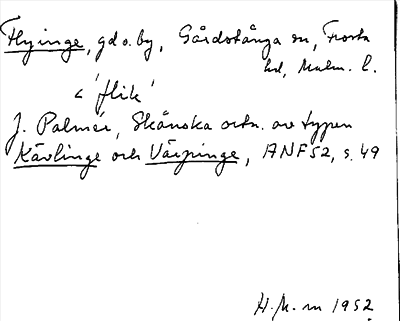 Flyinge, gd o. by, Gårdstånga sn, Frosta
hd, Malm. l.
< 'flik'
J. Palmér, Skånska ortn. av typen
Kävlinge och Värpinge, ANF 52, s. 49
H. M. m 1952